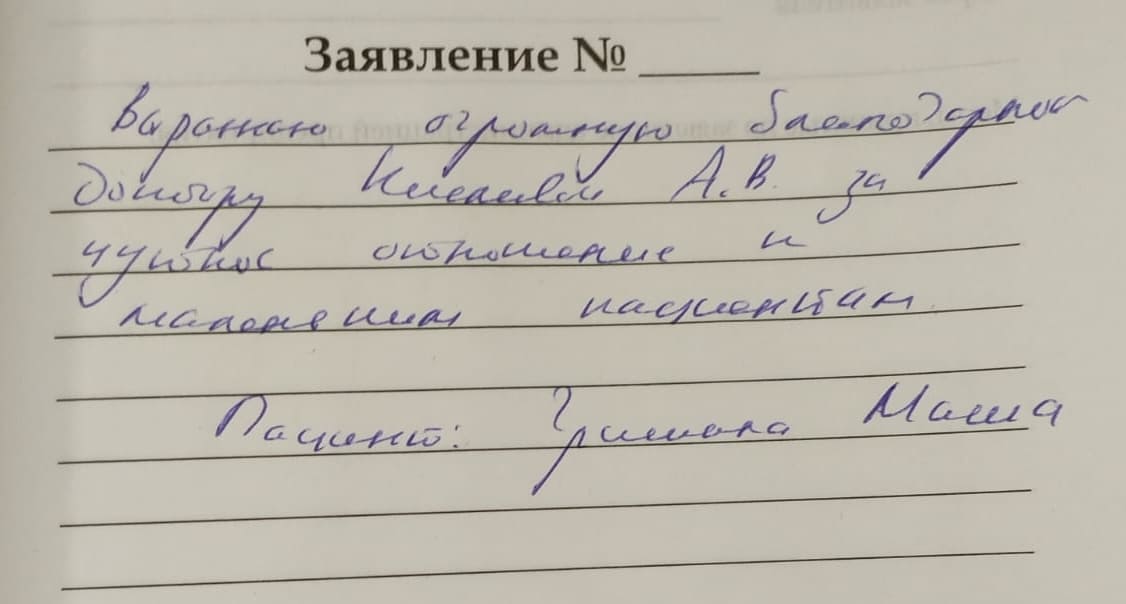 Заявление № _____
Выражаю огромную благодарность
доктору Киселевой А.В. за
чуткое отношение к
маленьким пациентам.
Пациент: Маша